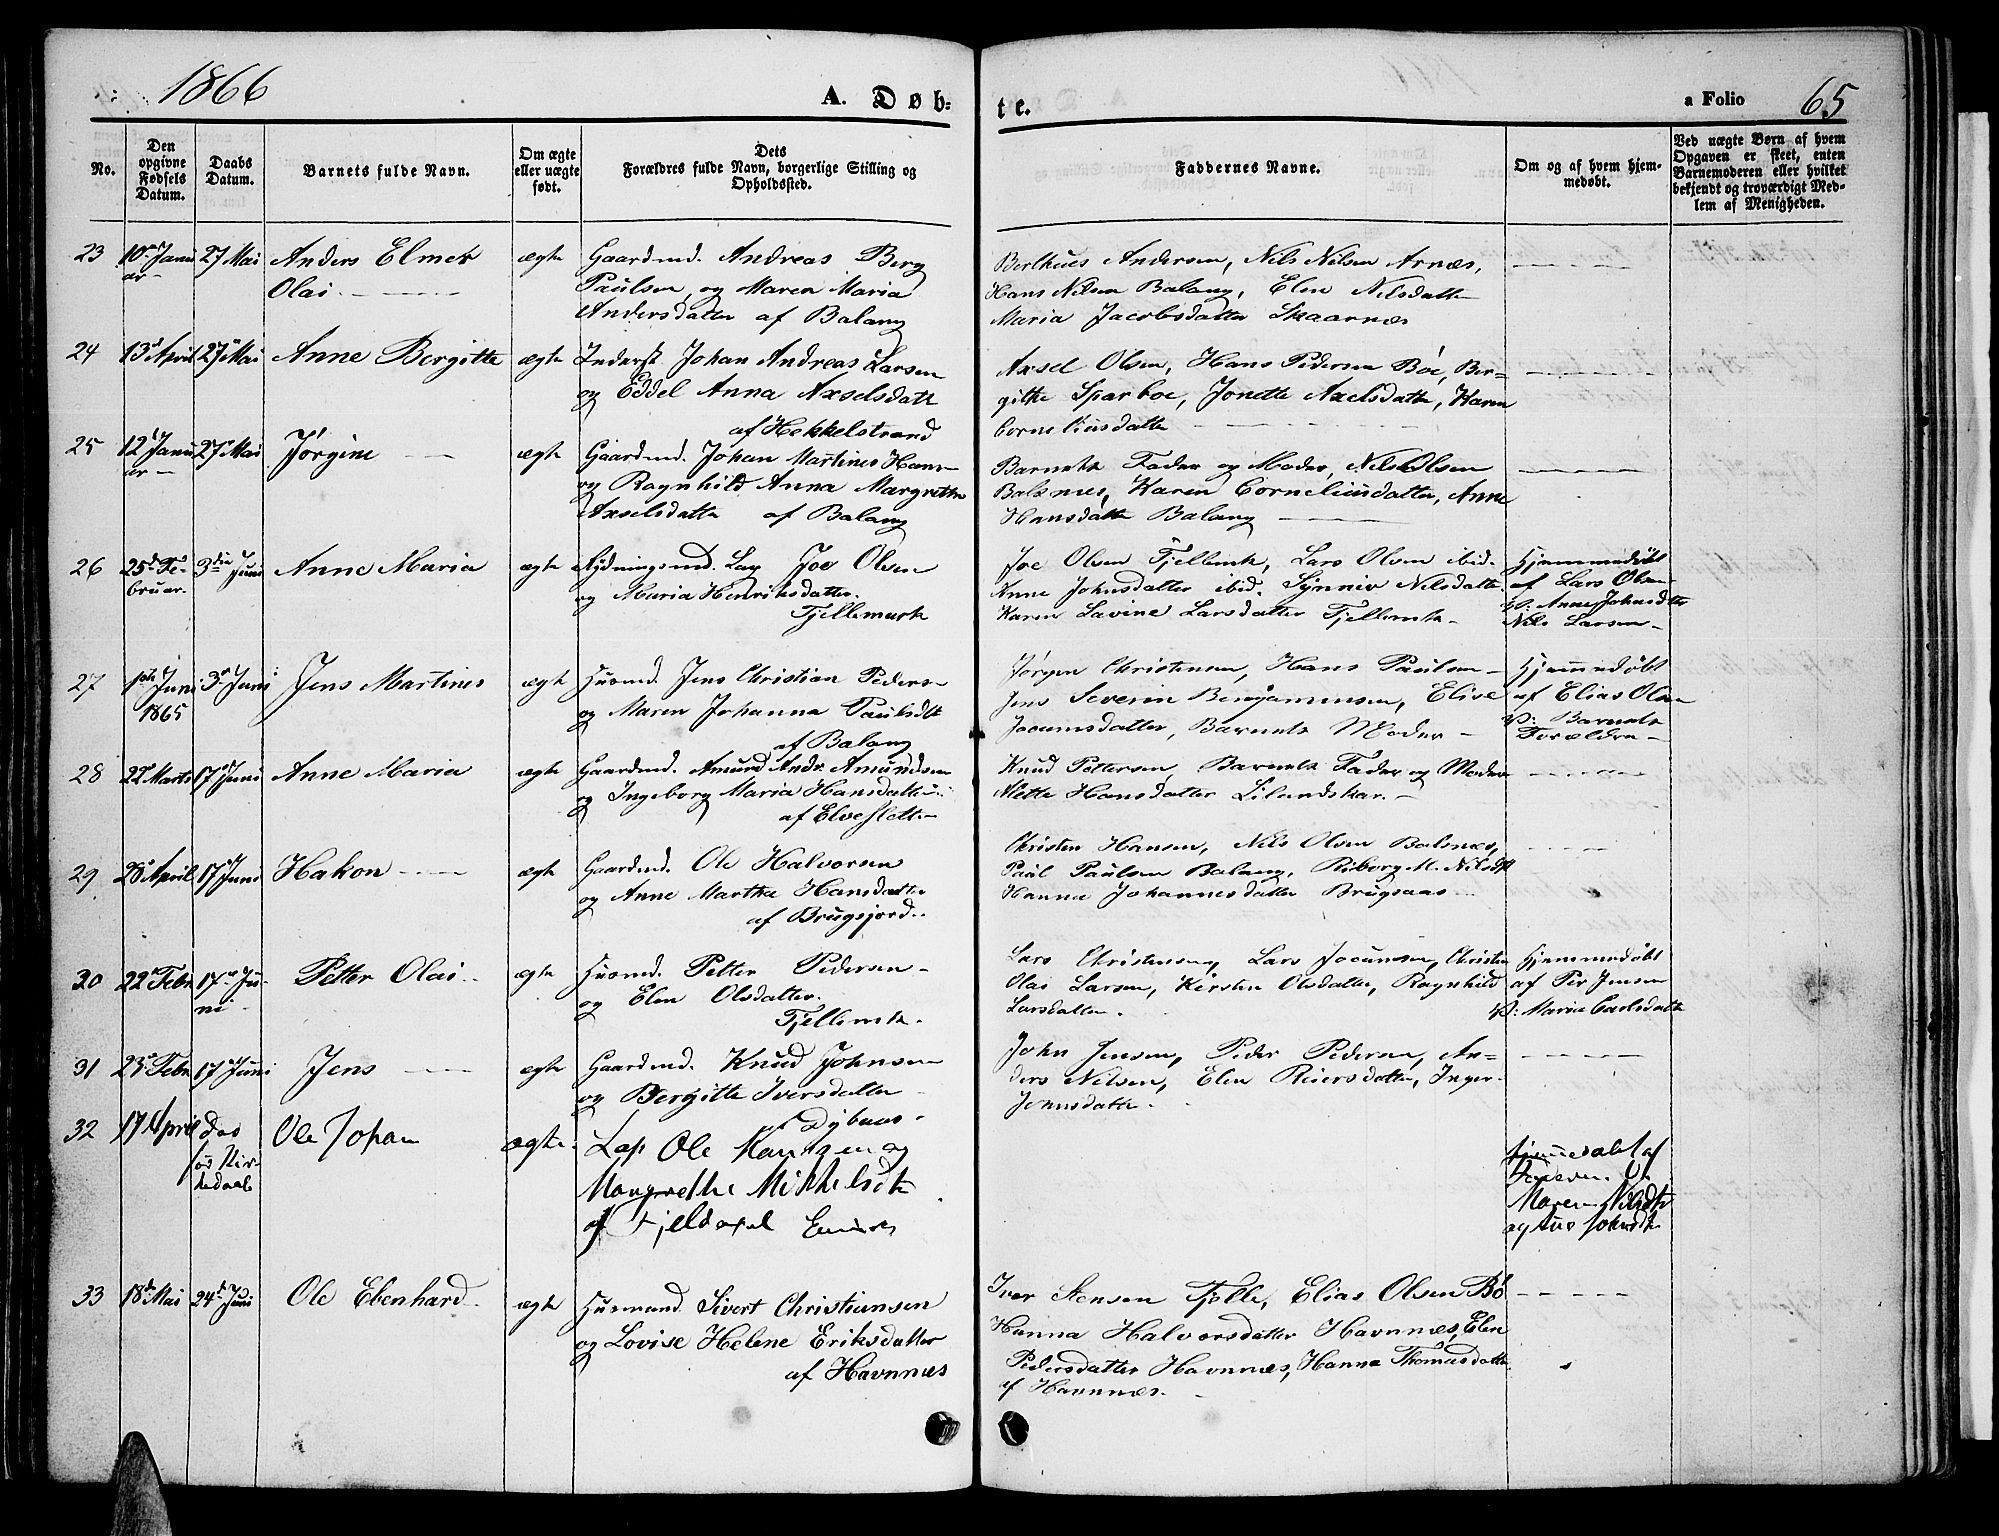 1866
A. Døb-
te.
a Folio 65
No.
Den opgivne Fødsels Datum.
Daabs Datum.
Barnets fulde Navn.
Om ægte eller uægte født.
Dets Forældres fulde Navn, borgerlige Stilling og Opholdssted.
Faddernes Navne.
Om og af hvem hjemmedøbt.
Ved uægte Børn af hvem Opgaven er skeet, enten Barnemoderen eller hvilket bekjendt og troværdigt Medlem af Menigheden.
23 10 Janu 27 Mai Anders Elmer ægte Gaardmd. Andreas Berg
ar Olai Paulsen og Maren Maria
Andersdatter af Balang
Berthues Andersen, Nils Nilsen Arnæs,
Hans Nilsen Balang, Elen Nilsdatter
Maria Jacobsdatter Skaarnæs
24 13 April 27 Mai Anne Bergitte ægte Inderst Johan Andreas Larsen
og Eddel Anna Axselsdatt
af Hekkelstrand
Axsel Olsen, Hans Pedersen Bøe, Ber=
githe Sparboe, Jonette Axelsdatte, Karen
Corneliusdatte
25 12 Janu 27 Mai Jørgine ægte Gaardmd. Johan Martines Hans
ar og Ragnhild Anna Margrethe
Axselsdatte af Balang
Barnets Fader og Moder, Nils Olsen
Balsnes, Karen Corneliusdatter, Anne
Hansdatte Balang
26 25 Fe- 3die Juni Anne Maria ægte Rydningsmd. Lap Joe Olsen
bruar. og Maria Henriksdatter.
Fjellemark
Joe Olsen Fjellemk, Lars Olsen ibid.
Anne Johnsdatter ibid. Synniv Nilsdatte.
Karen Lavine Larsdatter Fjellemk
Hjemmedøbt
af Lars Olsen
V: Anne Johnsdtter
Nils Larsen
27 1ste Juni 3 Juni Jens Martines ægte Husmd. Jens Christian Peders
1865 og Maren Johanna Paulsdt
af Balang
Jørgen Christensen, Hans Paulsen
Jens Severin Benjaminsen, Elise
Jocumsdatter, Barnets Moder
Hjemmedøbt
af Elias Olsen
V: Barnets
Forældre
28 22 Marts 17 Juni Anne Maria ægte Gaardmd. Amund Andr. Amundsen
og Ingeborg Maria Hansdatter
af Elveslett
Knud Pettersen, Barnets Fader og Moder
Mette Hansdatter Lilandskar.
29 28 April 17 Juni Hakon ægte Gaardmd. Ole Halvorsen
og Anne Martha Hansdatter
af Brugsjord.
Christen Hansen, Nils Olsen Balsnæs,
Paul Paulsen Balang, Riborg M. Nilsdt
Hanna Johannesdatter Brugsaas
30 22 Febr 17 Ju- Petter Olai ægte Husmd. Petter Pedersen
ni og Elen Olsdatter.
Fjellemk.
Lars Christensen, Lars Jocumsen, Christen
Olai Larsen, Kirsten Olsdatter, Ragnhild
Larsdatter.
Hjemmedøbt
af Per Jensen
V: Maria Carlsdatte
31 23 Febr 17 Juni Jens ægte Gaardmd. Knud Johnsen
og Bergitte Iversdatter
Dybaas
John Jensen, Peder Pedersen, An=
ders Nilsen, Elen Reiersdatter, Inger
Johnsdatte.
32 17 April Ole Johan ægte. Lap Ole
og
Margrethe Mikkelsdt
af
af
V.
Maren Nilsdt
og
33 18 Mai 24 Juni Ole Ebenhard ægte Husmand Sivert Christiansen
og Lovise Helene Eriksdatter
af Havnnæs
Iver Stensen Fjelle, Elias Olsen Bø
Hanna Halvorsdatter Havnnæs, Elen
Pedersdatter Havnnæs, Hanna Thomasdatte
af Havnnæs.